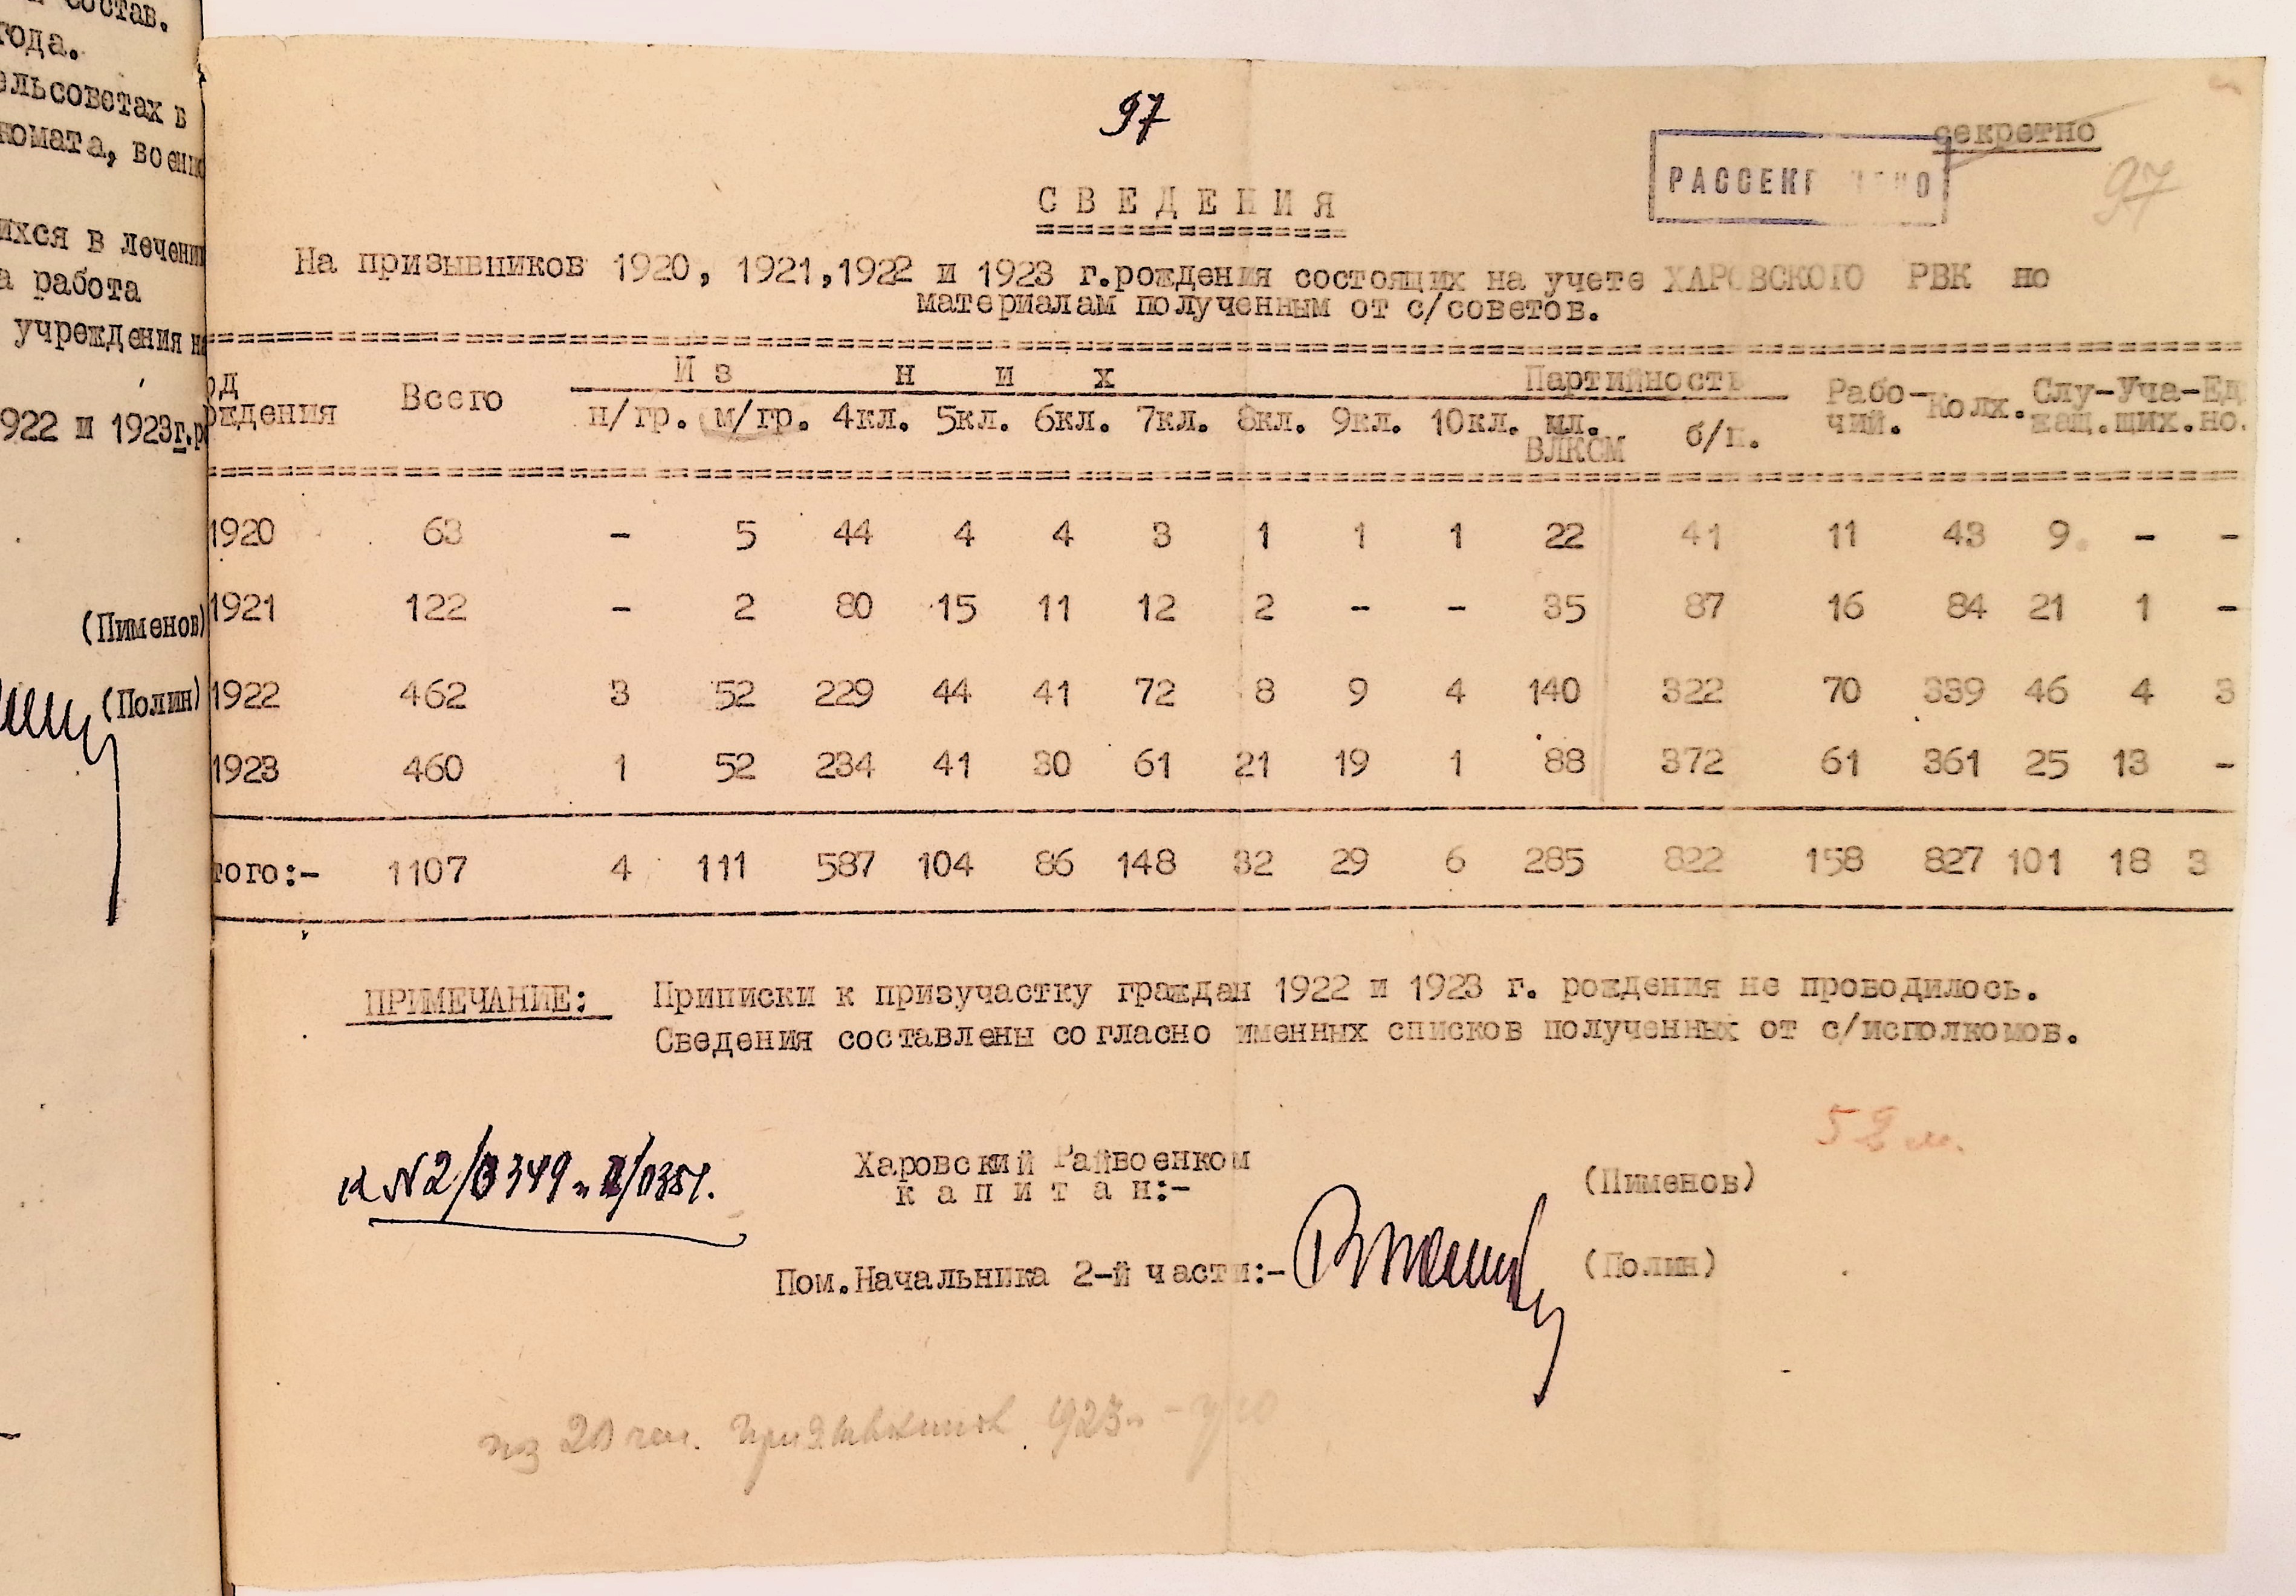 состав.
года.
ельсоветах в
комата, военно
ихся в лечении
а работа
учреждения н
1922 и 1923г.р
(Пименов)
(Полин)
97
секретно
РАССЕКР ЧЕНО
97
СВЕДЕНИЯ
На призывников 1920, 1921,1922 и 1923 г.рождения состоящих на учете ХАРОВСКОГО РВК но
материалам полученным от с/советов.
од рждения Всего Из них Партийность Рабо- чий. Колх. Слу- жащ. Уча- щих. Ед. но.
н/гр. м/гр. 4кл. 5кл. 6кл. 7кл. 8кл. 9кл. 10кл. чл. ВЛКСМ б/п.
1920 63 - 5 44 4 4 3 1 1 1 22 41 11 43 9 - -
1921 122 - 2 80 15 11 12 2 - - 35 87 16 84 21 1 -
1922 462 3 52 229 44 41 72 8 9 4 140 322 70 339 46 4 3
1923 460 1 52 234 41 30 61 21 19 1 88 372 61 361 25 13 -
того:- 1107 4 111 587 104 86 148 32 29 6 285 822 158 827 101 18 3
ПРИМЕЧАНИЕ: Приписки к призучастку граждан 1922 и 1923 г. рождения не проводилось.
Сведения составлены согласно именных списков полученных от с/исполкомов.
к №2/0349
Харовский Райвоенком
капитан:- (Пименов)
Пом.Начальника 2-й части:- (Полин)
из 20 чел. призывников 1923